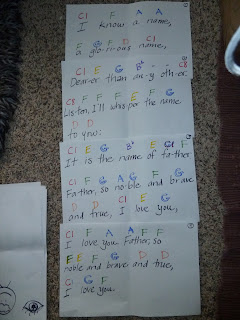 C1 F A A
I know a name,
F G F D C1
a glo-ri-ous name,
C1 E G B♭ C8
Dear-er than an-y oth-er.
C8 F F F E F G
Lis-ten, I'll whis-per the name
D D
to you:
C1 E G B♭ E F
It is the name of fa-ther
C1 F G A G F G
Father, so noble and brave
D D C1 A E G
and true, I love you,
C1 F A A F G
I love you Father, so
F E F G D D
noble and brave and true,
C1 G F
I love you.